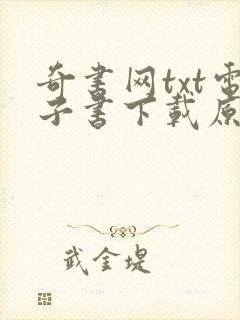 奇书网txt电
子书下载原
武金堤